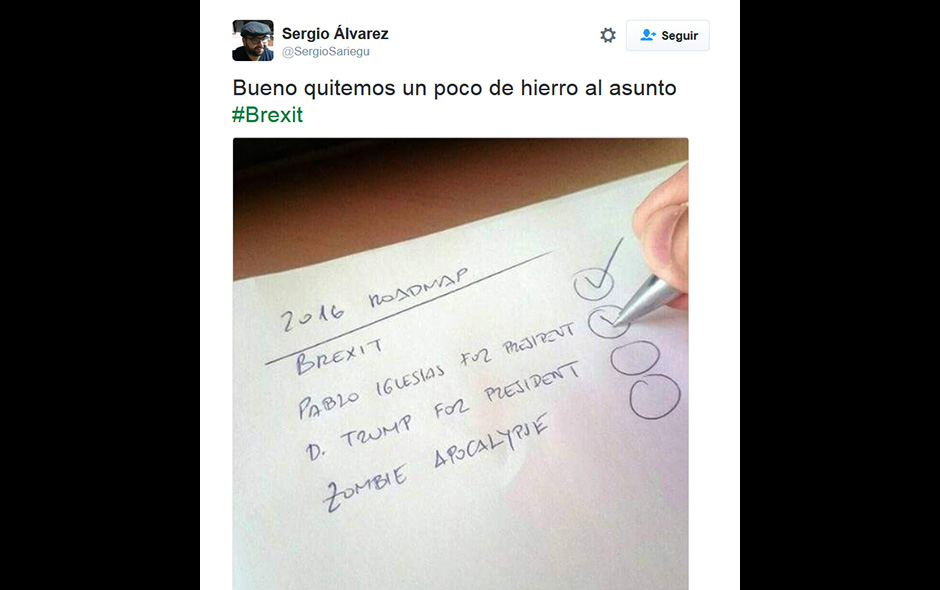 Sergio Álvarez
@SergioSariegu
Seguir
Bueno quitemos un poco de hierro al asunto
#Brexit
2016 ROADMAP
BREXIT
PABLO IGLESIAS FOR PRESIDENT
D. TRUMP FOR PRESIDENT
ZOMBIE APOCALYPSE